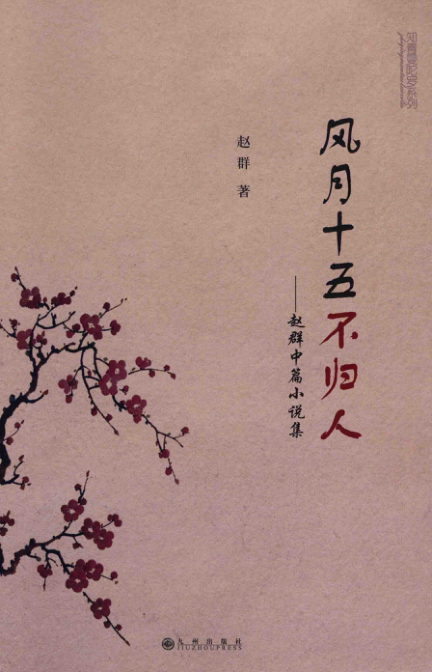 风月十五不归人
——赵群中篇小说集
赵群 著
九州出版社
JIUZHOUPRESS